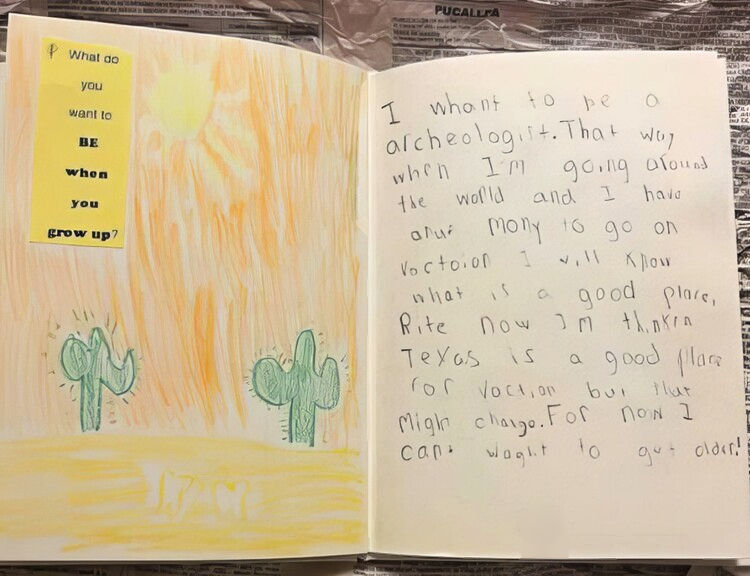 PUCALLPA
What do
you
want to
BE
when
you
grow up?
I whant to be a
archeologist. That way
when I'm going around
the world and I have
anuf mony to go on
voctoion I will know
what is a good place,
Rite now Im thinken
Texas is a good place
for voction but that
Migh change. For now I
cant waght to get older!